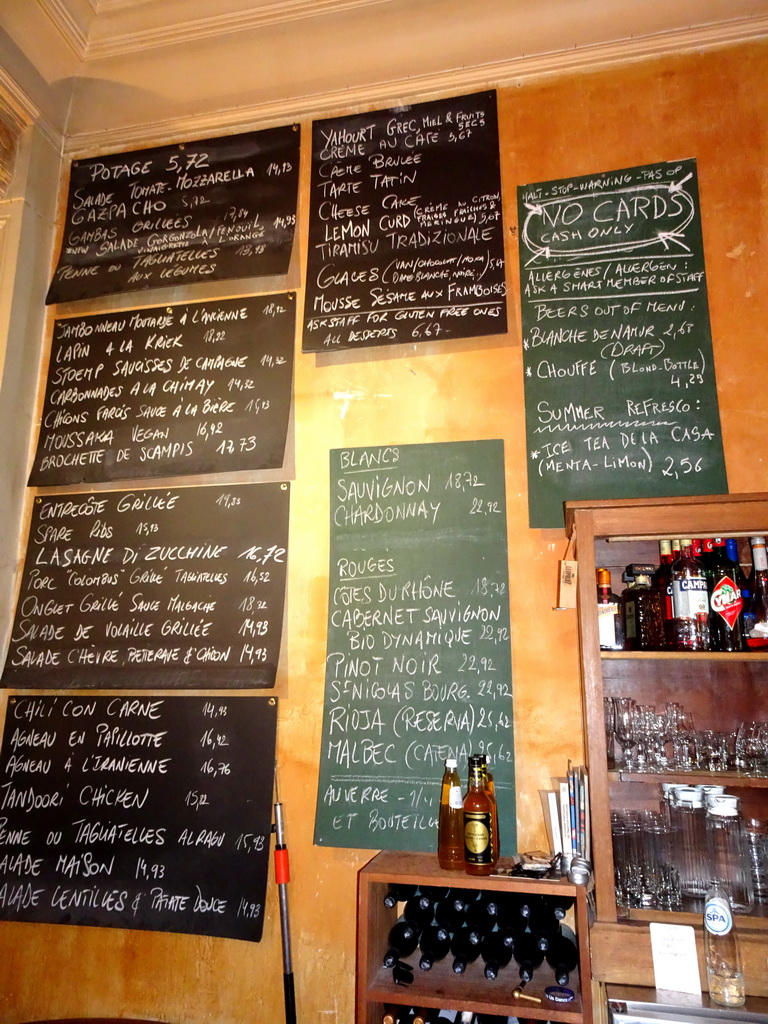 POTAGE 5,72
SALADE TOMATE-MOZZARELLA 14,93
GAZPACHO 5,72
GAMBAS GRILLÉES 17,84
SALADE GORGONZOLA/FENOUIL 14,93
VINAIGRETTE À L'ORANGE
PENNE OU TAGLIATELLES
AUX LEGUMES
JAMBONNEAU MOUTARDE À L'ANCIENNE 18,92
LAPIN A LA KRIEK 18,92
STOEMP SAUCISSES DE CAMPAGNE 14,32
CARBONNADES A LA CHIMAY 14,32
CHICONS FARCIS SAUCE À LA BIÈRE
MOUSSAKA VEGAN 16,42
BROCHETTE DE SCAMPIS 17,73
ENTRECÔTE GRILLÉE
SPARE RIBS 15,93
LASAGNE DI ZUCCHINE 16,72
PORC "COLOMBUS" GRILLÉ TAGLIATELLES 16,52
ONGLET GRILLE SAUCE MALGACHE 18,32
SALADE DE VOLAILLE GRILLÉE 14,93
SALADE CHÈVRE, BETTERAVE & CHICON 14,93
CHILI CON CARNE 14,93
AGNEAU EN PAPILLOTTE 16,42
AGNEAU À L'IRANIENNE 16,76
TANDOORI CHICKEN 15,22
PENNE OU TAGLIATELLES AL RAGU 15,93
SALADE MAISON 14,93
SALADE LENTILLES & PATATE DOUCE 14,93
YAHOURT GREC, MIEL & FRUITS SECS
CRÈME AU CAFE 5,67
CREME BRULEE
TARTE TATIN
CHEESE CAKE
LEMON CURD (CRÈME AU CITRON, FRAISES FRAICHES & MERINGUE) 5,67
TIRAMISU TRADIZIONALE
GLACES (VAN/CHOCOLAT/MOKA) 5,67
DAME BLANCHE, NOIRE...
MOUSSE SÉSAME AUX FRAMBOISES
ASK STAFF FOR GLUTEN FREE ONES
ALL DESSERTS 6,67-
BLANCS
SAUVIGNON 18,72
CHARDONNAY 22,92
ROUGES
CÔTES DU RHÔNE 18,72
CABERNET SAUVIGNON
BIO DYNAMIQUE 22,92
PINOT NOIR 22,92
ST NICOLAS BOURG. 22,92
RIOJA (RESERVA) 25,62
MALBEC (CATENA) 25,62
AU VERRE -
ET BOUTEILLE
HALT-STOP-WARNING-PAS OP
NO CARDS
CASH ONLY
ALLERGÈNES/ALLERGEN:
ASK A SMART MEMBER OF STAFF
BEERS OUT OF MENU:
* BLANCHE DE NAMUR 2,68
(DRAFT)
* CHOUFFE (BLOND-BOTTLE)
4,29
SUMMER REFRESCO:
* ICE TEA DE LA CASA
(MENTA-LIMON) 2,56
CAMPA
SPA